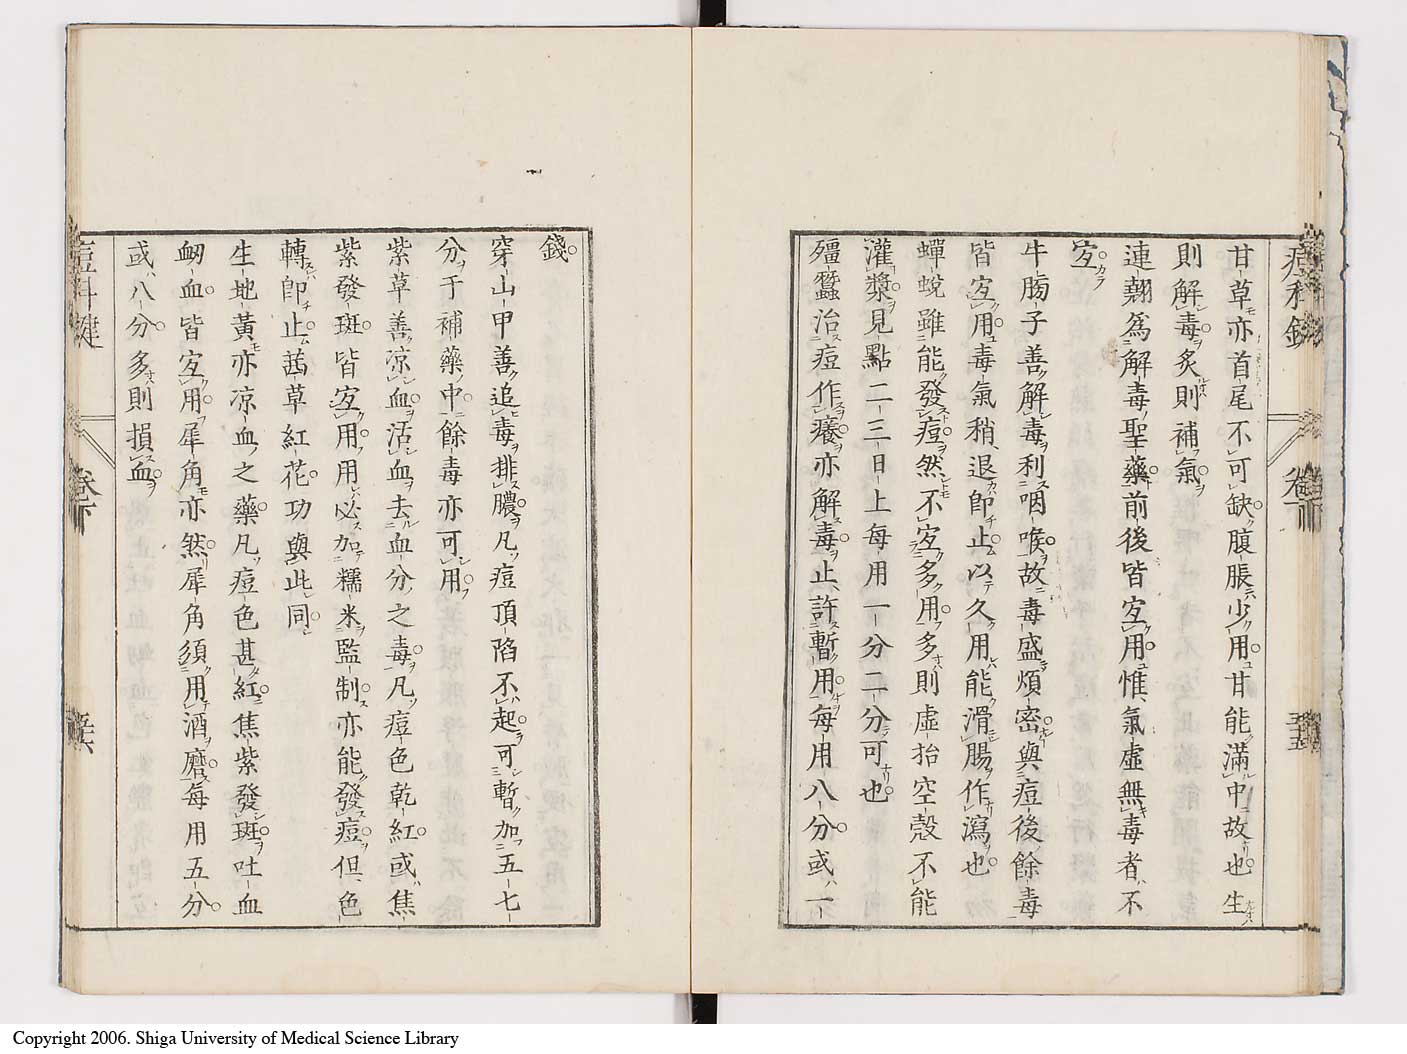 甘草亦首尾不可缺腹脹少用甘能滿中故也生
則解毒炙則補氣
連翹爲解毒聖藥前後皆宜用惟氣虛無毒者不
宜
牛蒡子善解毒利咽喉故毒盛煩密與痘後餘毒
皆宜用毒氣稍退即止以久用能滑腸作瀉也
蟬蛻雖能發痘然不宜多用多則虛抬空殼不能
灌漿見點二三日上每用一分二分可也
殭蠶治痘作癢亦解毒止許暫用每用八分或一
錢
穿山甲善追毒排膿凡痘頂陷不起可暫加五七
分于補藥中餘毒亦可用
紫草善凉血活血去血分之毒凡痘色乾紅或焦
紫發斑皆宜用用必加糯米監制亦能發痘但色
轉即止茜草紅花功與此同
生地黃亦凉血之藥凡痘色甚紅焦紫發斑吐血
衂血皆宜用犀角亦然犀角須用酒磨每用五分
或八分多則損血
痘科鍵
卷下
五六
Copyright 2006. Shiga University of Medical Science Library